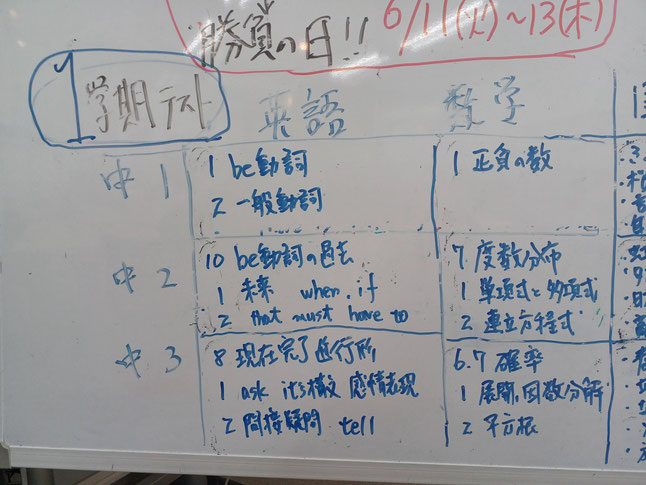 勝負の日!! 6/11(火)～13(木)
1学期テスト
英語 数学
中1
1 be動詞
2 一般動詞
1 正負の数
中2
10 be動詞の過去
1 未来 when.if
2 that must have to
7 度数分布
1 単項式と多項式
2 連立方程式
中3
8 現在完了進行形
1 ask its構文 感情表現
2 間接疑問 tell
6.7 確率
1 展開.因数分解
2 平方根